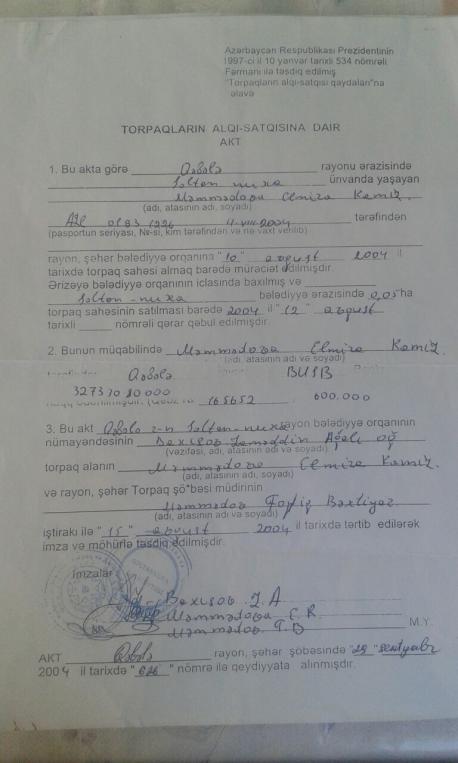 Azərbaycan Respublikası Prezidentinin
1997-ci il 10 yanvar tarixli 534 nömrəli
Fərmanı ilə təsdiq edilmiş
"Torpaqların alqı-satqısı qaydaları"na
əlavə
TORPAQLARIN ALQI-SATQISINA DAİR
AKT
1. Bu akta görə Qəbələ rayonu ərazisində
Soltan-nuxa ünvanda yaşayan
Məmmədova Elmira Kamiz.
(adı, atasının adı, soyadı)
AZE 0183 1226 11-VIII-2004 tərəfindən
(pasportun seriyası, №-si, kim tərəfindən və nə vaxt verilib)
rayon, şəhər bələdiyyə orqanına "10" avqust 2004 il
tarixdə torpaq sahəsi almaq barədə müraciət edilmişdir.
Ərizəyə bələdiyyə orqanının iclasında baxılmış və
Soltan-nuxa bələdiyyə ərazisində 0,05 ha
torpaq sahəsinin satılması barədə 2004 il "12" avqust
tarixli nömrəli qərar qəbul edilmişdir.
2. Bunun müqabilində Məmmədova Elmira Kamiz.
(adı, atasının adı və soyadı)
Qəbələ BUSB
3273 70 80000
165652 600.000
3. Bu akt Qəbələ r-n Soltan-nuxa rayon bələdiyyə orqanının
nümayəndəsinin Ağalı oğ
(vəzifəsi, atasının adı və soyadı)
torpaq alanın Məmmədova Elmira Kamiz.
(adı, atasının adı, soyadı)
və rayon, şəhər Torpaq şö"bəsi müdirinin
Məmmədov Bəxtiyar
(adı, atasının adı və soyadı)
iştirakı ilə "15" avqust 2004 il tarixdə tərtib edilərək
imza və möhürlə təsdiq edilmişdir.
İmzalar
J.A
Məmmədova E.K
Məmmədov T.B
M.Y.
AKT Qəbələ rayon, şəhər şöbəsində "29" sentyabr
2004 il tarixdə "626" nömrə ilə qeydiyyata alınmışdır.